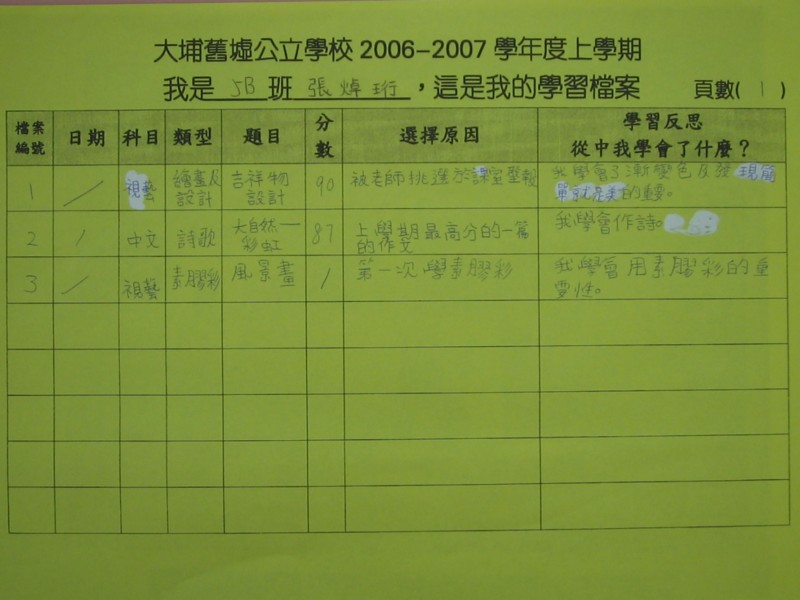 大埔舊墟公立學校 2006-2007 學年度上學期
我是 5B 班 張焯珩，這是我的學習檔案 頁數( 1 )
檔案編號 日期 科目 類型 題目 分數 選擇原因 學習反思 從中我學會了什麼？
1 / 視藝 繪畫及設計 吉祥物設計 90 被老師挑選於課室壁報 我學會了漸變色及發現簡單就是美的重要。
2 / 中文 詩歌 大自然—彩虹 87 上學期最高分的一篇的作文 我學會作詩。
3 / 視藝 素膠彩 風景畫 / 第一次學素膠彩 我學會用素膠彩的重要性。